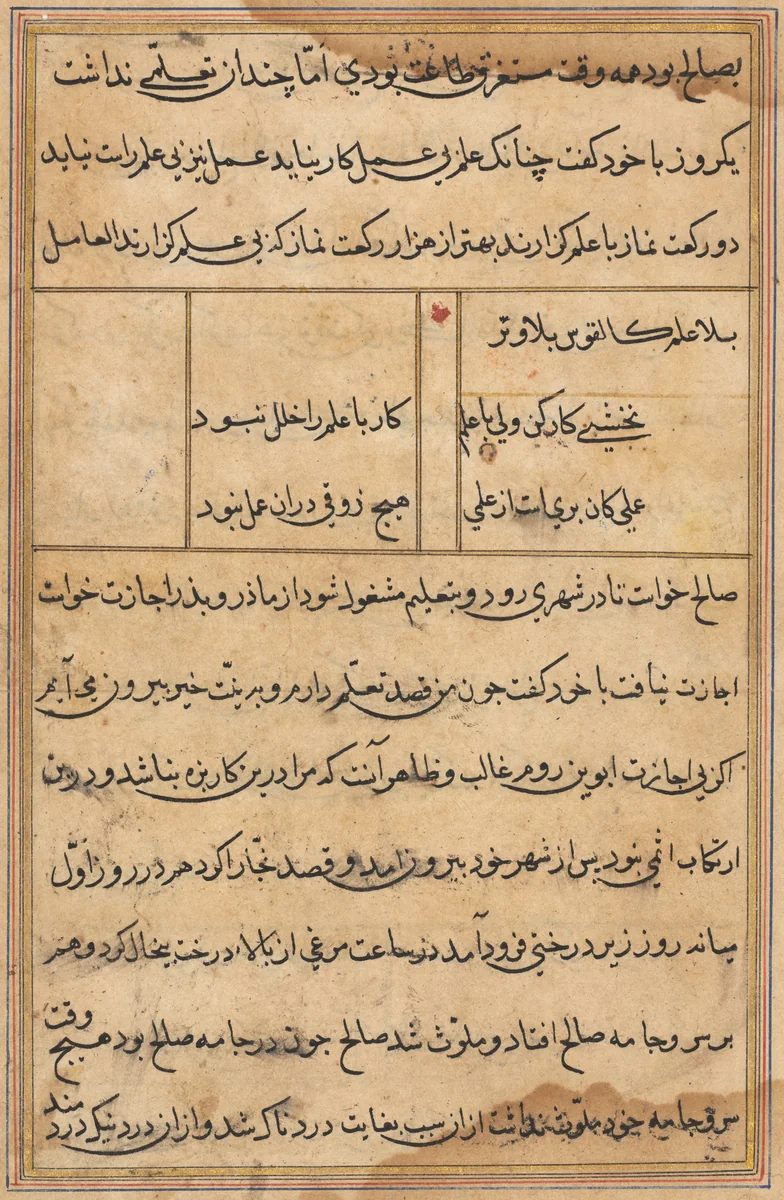 بصالح بود همه وقت مستغرق طاعت بودي اَمّا چندان تعلّمي نداشت
يكروز با خود كفت چنانك علم بي عمل كار نيايد عمل نيز بي علم راست نيايد
دو ركعت نماز با علم كزارند بهتر از هزار ركعت نماز كه بي علم كزارند العامل
بلا علم كالقوس بلا وتر
نخشبي كار كن ولي با علم
كار با علم را خلل نبود
علمي كان بري است از علمي
هيچ ذوقي دران عمل نبود
صالح خواست تا در شهري رود و بتعليم مشغول شود از ماذر و بذر اجازت خواست
اجازت نيافت با خود كفت جون من قصد تعلّم دارم و بدنيّت خير بيرون مي آيم
اكر بي اجازت ابوين روم غالب و ظاهر آنست كه مرا درين كار بزه نباشد و درين
ارتكاب اثمي نبود پس از شهر خود بيرون آمد و قصد بخارا كرد هم در روز اوّل
ميانه روز زير درختي فرود آمد در ساعت مرغي از بالاء درخت پيخال كرد و هم
بر سر و جامه صالح افتاد و ملوّث شد صالح جون در جامه صلح بود هيچ وقت
سر و جامه خود ملوّث نداشت از ان سبب بغايت دردناك شد و از ان درد نيك دردمند